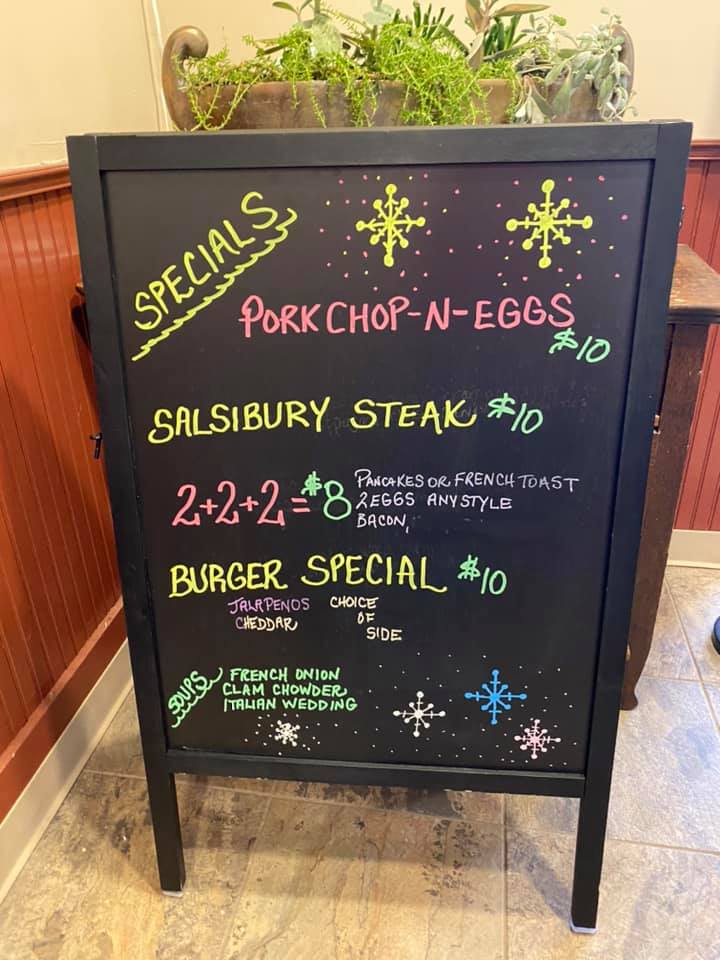 SPECIALS
PORK CHOP-N-EGGS
$10
SALSIBURY STEAK $10
2+2+2=$8
PANCAKES OR FRENCH TOAST
2 EGGS ANY STYLE
BACON,
BURGER SPECIAL $10
JALAPENOS
CHEDDAR
CHOICE
OF
SIDE
SOUPS
FRENCH ONION
CLAM CHOWDER
ITALIAN WEDDING